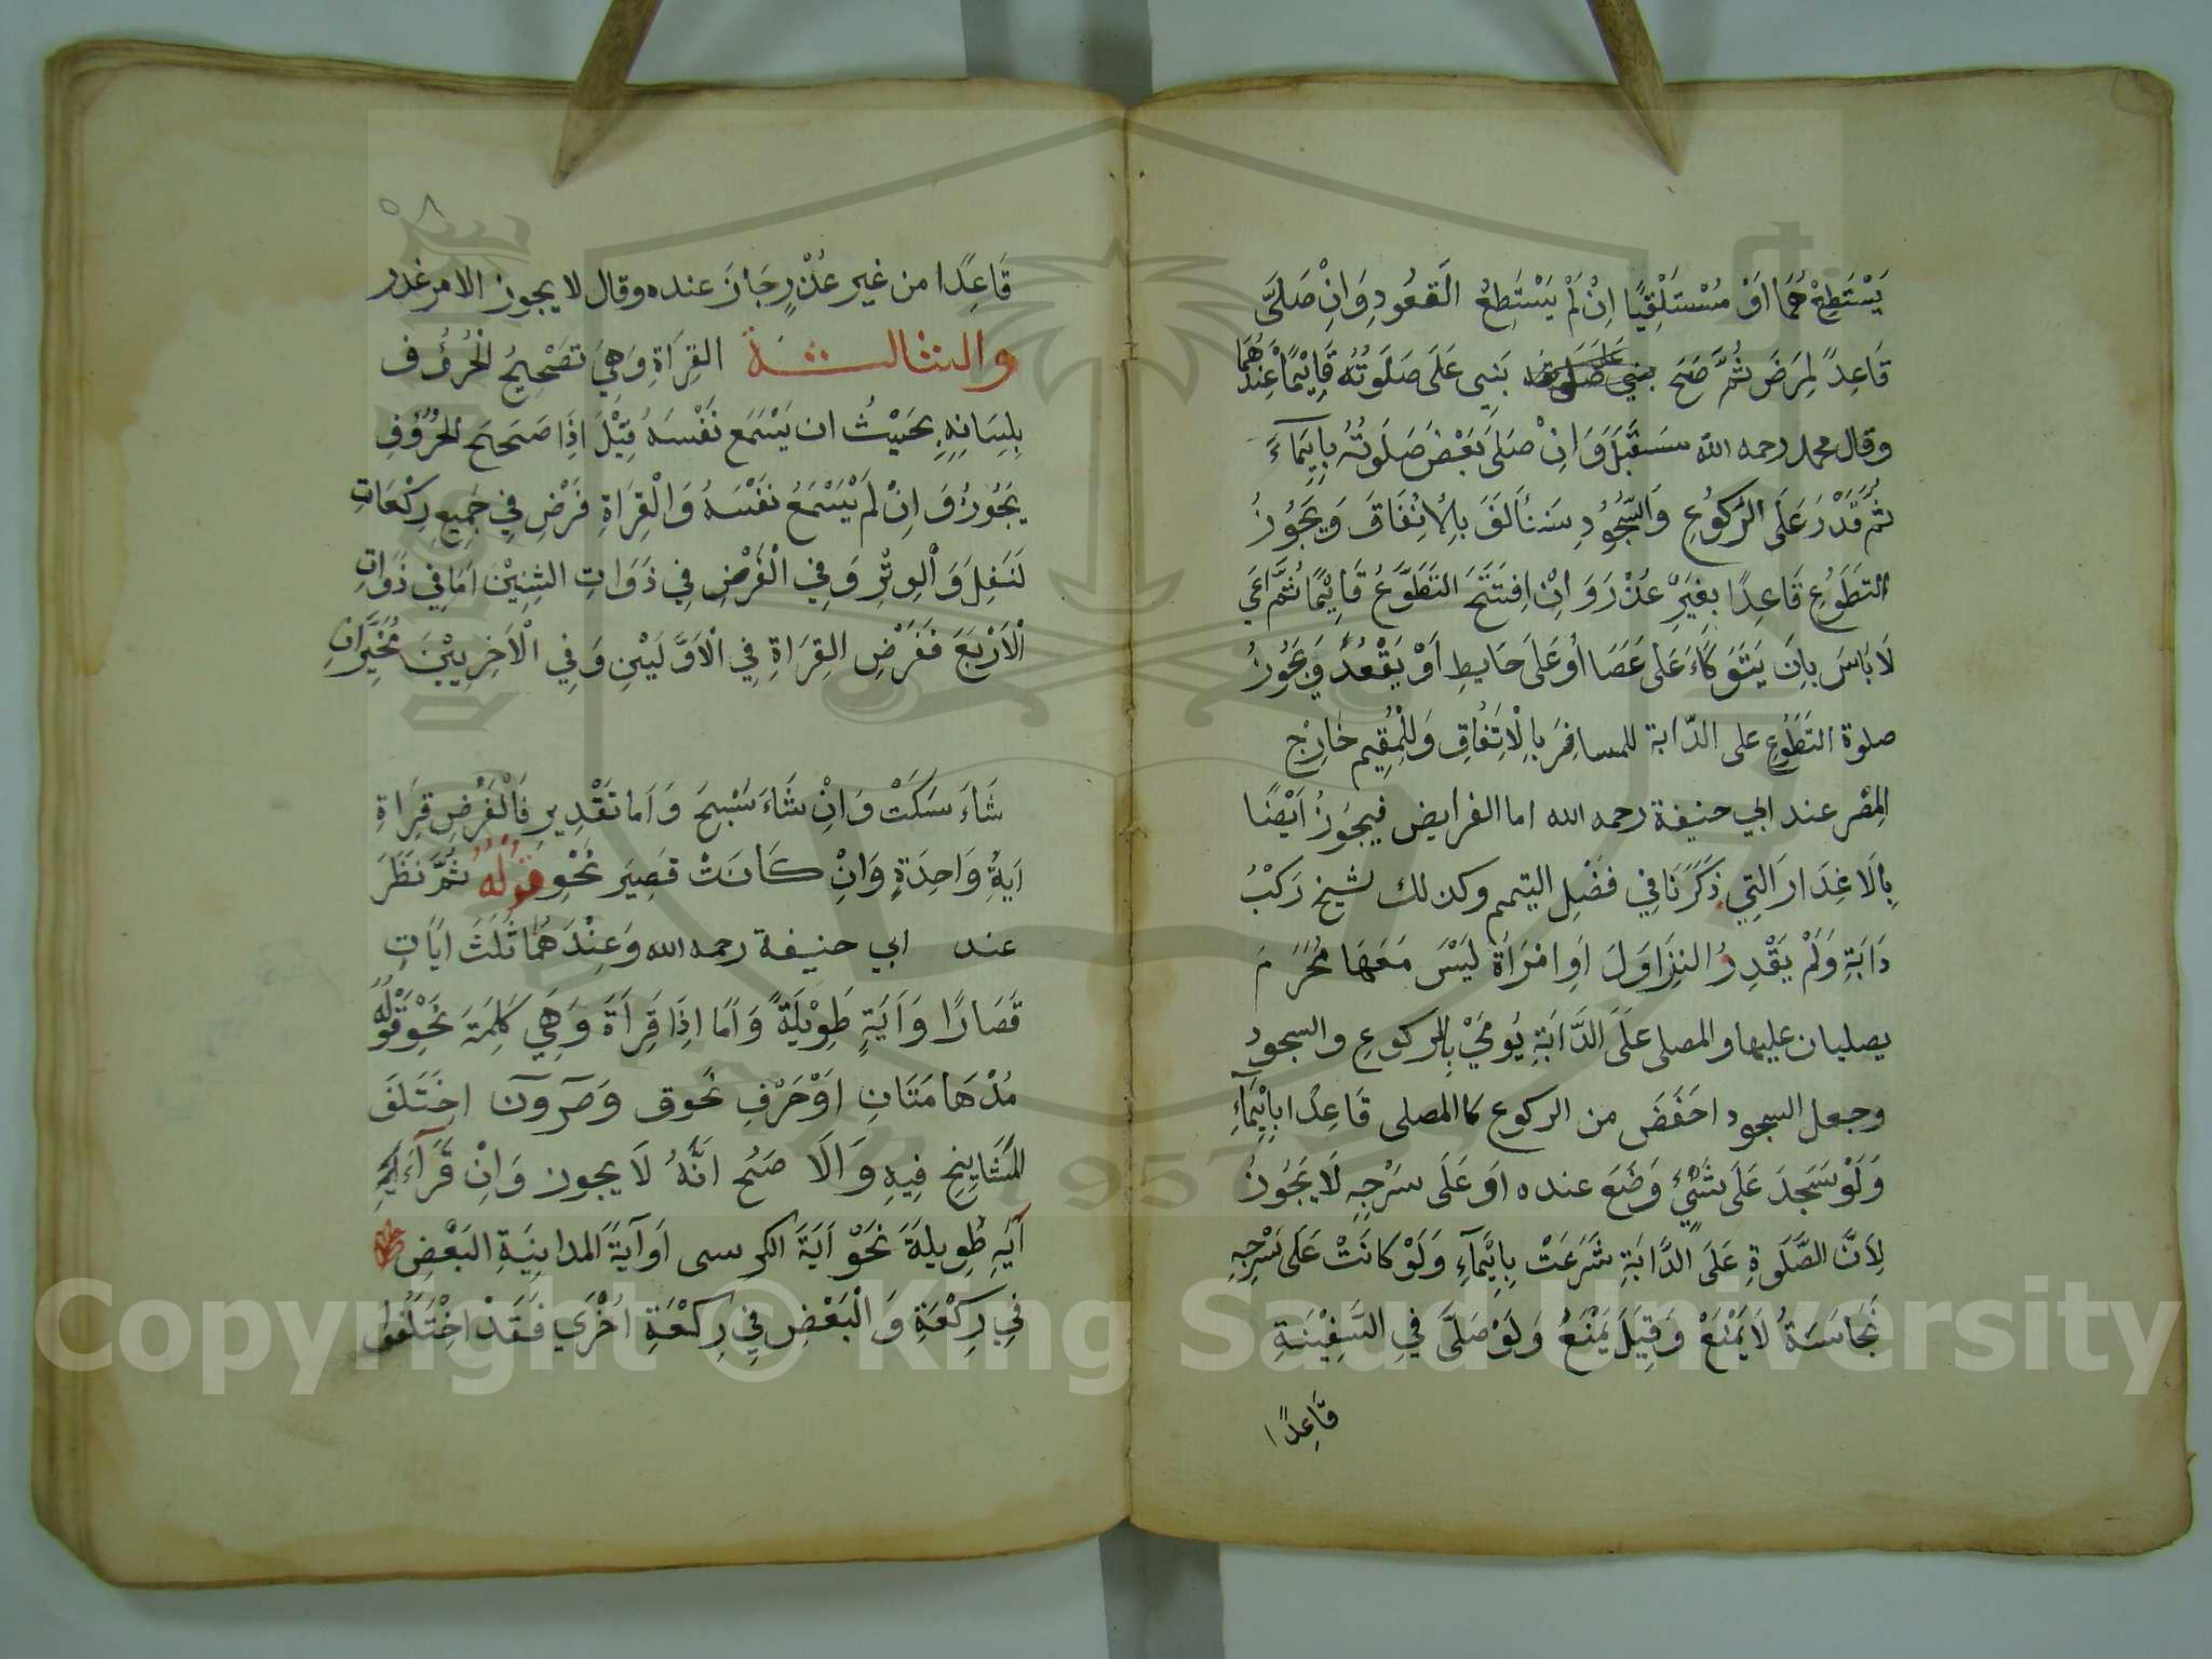 يَسْتَطِعْهُمَا اَوْ مُسْتَلْقِيًا اِنْ لَمْ يَسْتَطِعُ القعُودِ وَاِنْ صَلىَّ
قَاعِدً لِمرَضَ ثُمَّ صَحَ بَنِى عَلَى صَلَوتُهُ قَايِمًا عِنْدَهُمَا
وقال محمد رحمه الله سَتَقْبَلَ وَاِنْ صَلىَ بَعْضَ صَلَوتُهُ بِايِمَآءَ
ثُمَّ قَدْرَ عَلَى الرَكُوعِ وَالسّجُودِ سَتْأَلَفَ بِالْاتِفَاقَ وَيَجُوزُ
التَطَوُعِ قَاعِدًا بِغيَرِْ عُذْرَ وَاِنْ اِفتَتَحَ التَطَوَّعُ قَايِمًا ثُمَّ اعَي
لَا بَاسَ بِاَن يَتَوَكَاءَ عَلى عَصَا اَوْ عَلىَ حَايطِ اَوْ يَقْعُدُ وَيَجُوزُ
صلوة التَطَوُعِ على الدّابة للمسافِرَ بِالْاِتِفُاقِ وَللْمُقِيم خَارِجْ
المِصْر عند ابي حنيفة رحمه الله اما الفرايض فيجَوزُ اَيْضًا
بِالَاعْذَارَ الَتِي ذَكَرْنَا فِي فَصْلِ التيمم وكذلك لشيخ رَكبْ
دَابَةِ وَلَمْ يَقْدِرُ النِزَاوَلَ اَوِ امْرَاَةَ لَيْسَ مَعَهَا مُحْرَمَ
يصليان عليها والمصلى عَلَى الدَّابَةِ يُومَيْ بِالركوعِ والسجود
وجعل السجود احَفَضَ من الركوع كا المصلى قَاعِدًا بِايِمَآءِ
وَلَوْ سَجدَ عَلَى شَيْءٍ وَضَعَ عنده اَوَ عَلَى سَرْجِهِ لَا يَجُوزُ
لِاَنَّ الصَّلَوةِ عَلَى الدَّابَةِ شَرَعَتْ بِايَمآءِ وَلَوْ كانَتْ عَلىَ سَرْجِهِ
نَجاسَةُ لَا يَمْنَعْ وَقِيَلَ يَمْنَعُ وَلَوْ صَلىَّ فِي السَفِيْنَةِ
قَاعِدًا
٥٨
قَاعِدًا من غير عُذْرٍ جَازَ عنده وقال لا يجوز الا مر غدر
والثالثة القِرَاةِ وَهِيَ تصَحْيحُ الْحُرُوف
بِلسَانِهِ بحَيْثُ ان يَسْمَع نَفْسَهُ قِيْلَ اذَا صَحَحَ الْحُرُوفِ
يَجُوزُ وَ اِنْ لَمْ يَسْمَعُ نَفْسَهُ وَالْقِرَاةِ فَرْضِ فِي جَمِيعِ رِكْعَاتِ
لَنَفِلَ وَالوِتْرِ وَفِي الْفَرْضِ فِي ذَوَاتِ الثِنِيْنِ اَمَا فِي ذَوَاتِ
الْاَرْبَعَ فَفَرْضِ القِرَاةِ فِي الْاَوَّلَيْنِ وَفِي الْاَخِرِيَيْنَ مُخَيَّر اِن
شَاءَ سَكَتْ وَاِنْ شَاءَ سَبْحَ وَ اَما تَقْدِيرِ فَالْفَرُضِ قِرَاةِ
اَيَةِ وَاحِدَةٍ وَاِنْ كَانَتْ قَصِيَر نَحْوِ قَوْلُهُ ثُمَّ نَظَرَ
عند ابي حنيفة رحمه الله وَعِنْدَهُمَا ثَلَثَ ايَاتِ
قَصَارًا وَاَيَةٍ طَوِيْلَةً وَ اَمَا اِذَا قَرَاَةَ وَهِيَ كَلِمَةَ نَحْوِ قَوْلُهُ
مُدْهَامَتَانِ اَوْحَرْفِ نَحوق وَصٓ وَنٓ اختَلَفَ
المَشَايِخِ فِيهِ وَالَا صَحُ انَهُ لَا يجوز وَاِنْ قَرَآءَ
آيَةِ طَوِيلةَ نَحْوَ اَيَةَ الكرسى اَوآيَةَ المداينَةِ البَعْضِ
فِي رِكْعَةِ وَالْبَعْضِ فِي رِكْعَةِ اُخْرَي فَقَدْ اخْتَلَفوا
Copyright © King Saud University
1957